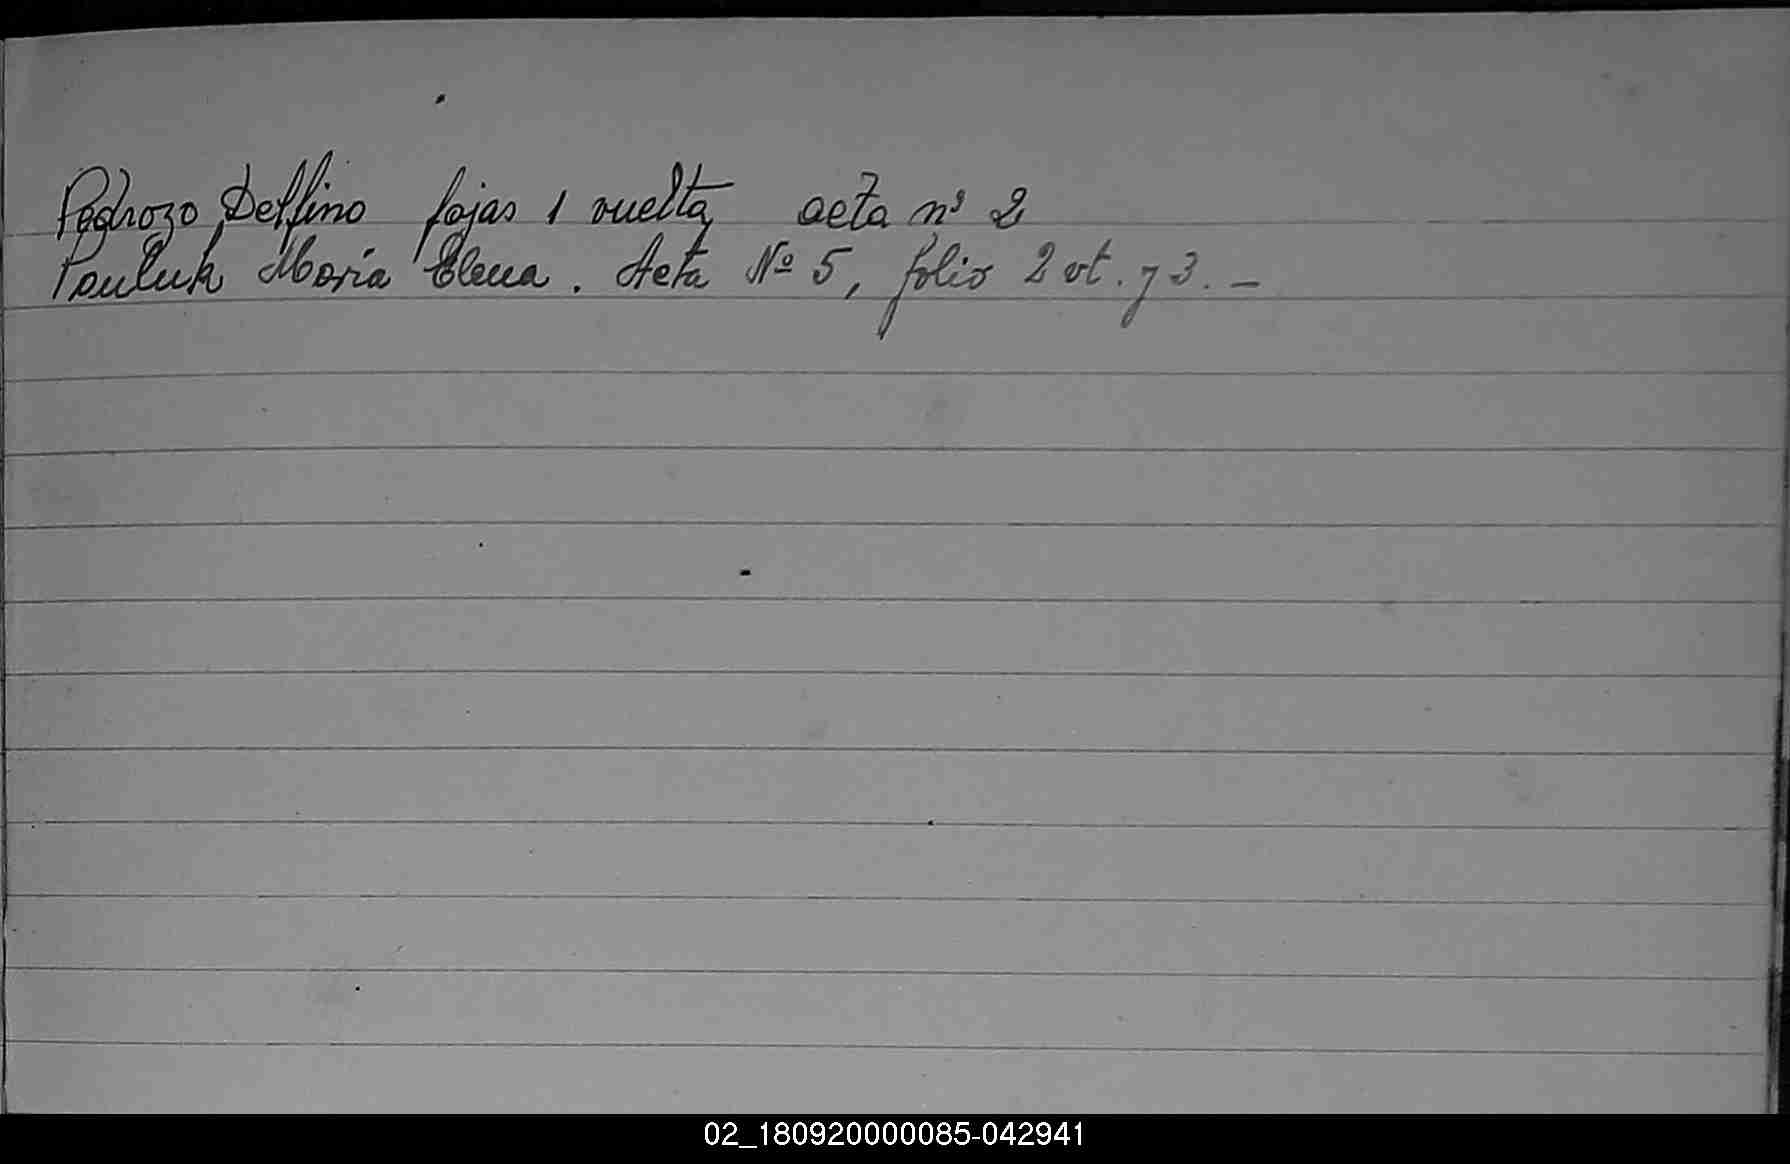 Pedrozo Delfino fojas 1 vuelta acta nº 2
Pauluk María Elena. Acta Nº 5, folio 2 vt. y 3. —
02_180920000085-042941